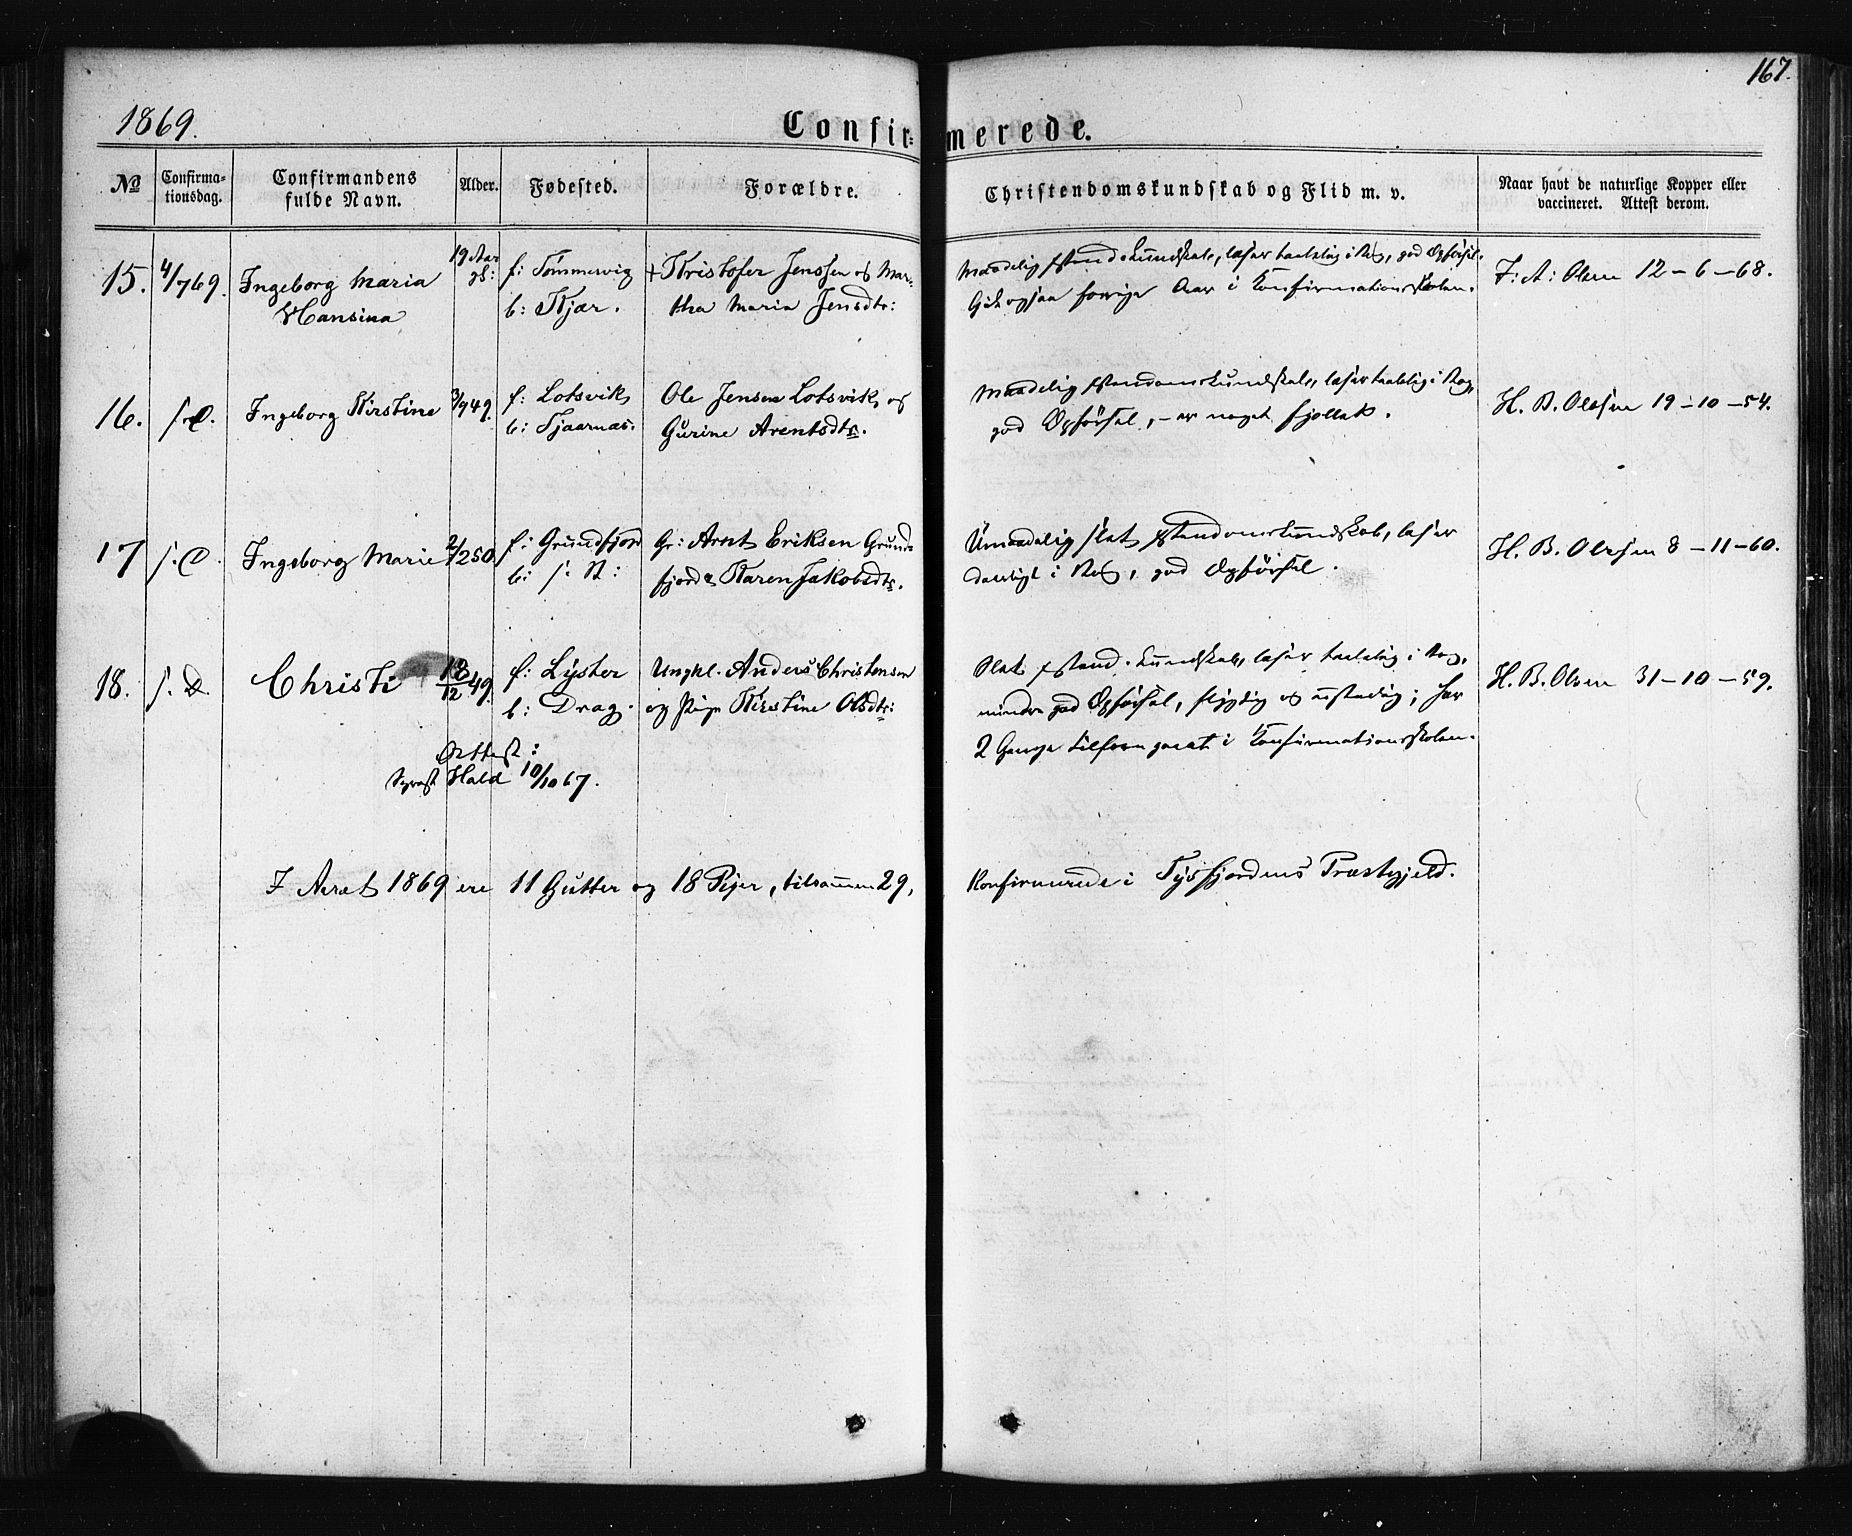 167.
1869.
Confirmerede.
No
Confirmationsdag.
Confirmandens fulde Navn.
Alder.
Fødested.
Forældre.
Christendomskundskab og Flid m. v.
Naar havt de naturlige Kopper eller vaccineret. Attest derom.
15. 4/7 69. Ingeborg Maria
Hansina
19 Aar
gl:
f: Tömmervig
b: Kjær.
+ Kristofer Jenssen og Mar-
tha Maria Jensdtr:
Maadelig Kundskab, læser taalelig i Bog, god Opförsel.
Gik ogsaa forrige Aar i Konfirmationsskolen.
F: A: Olsen 12-6-68.
16. s. D. Ingeborg Kirstine 3/9 49.
f: Lotsvik
b: Tjaarnæs.
Ole Jensen Lotsvik og
Gurine Arentsdtr.
Maadelig Kristendomskundskab, læser taalelig i Bog,
god Opförsel, - er noget fjollet.
H. B. Olesen 19-10-54.
17 s. D. Ingeborg Marie 2/2 50
f: Grundfjord
b: s. St:
Gr: Arnt Eriksen Grund-
fjord & Karen Jakobsdtr.
Umaadelig slet Kristendomskundskab, læser
daarligt i Bog, god Opförsel.
H. B. Olesen 8-11-60.
18. s. D. Christi 18/12 49.
f: Lyster
b: Drag.
Ungkl. Anders Christensen
og Pige Kirstine Olsdtr:
Slet Kristend. kundskab, læser taalelig i Bog,
mindre god Opförsel, flygtig og ustadig; har
2 Gange tilforn gaaet i Konfirmationsskolen.
H. B. Olsen 31-10-59.
Attest:
Sgprst Hald 10/10 67.
I Aaret 1869 ere 11 Gutter og 18 Piger, tilsammen 29, Konfirmerede i Tysfjordens Præstegjeld.